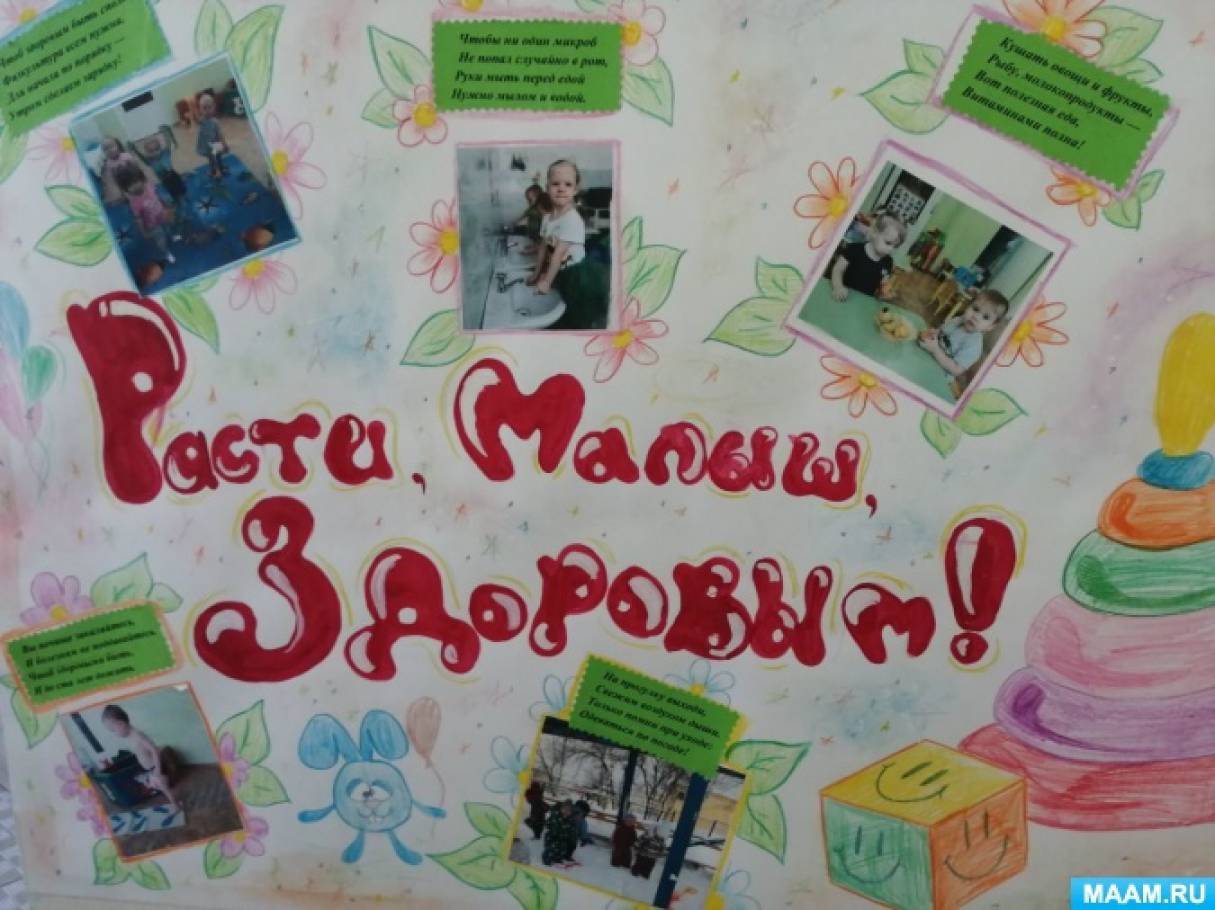 Чтоб здоровым быть сполна
Физкультура всем нужна,
Для начала по порядку —
Утром сделаем зарядку!
Чтобы ни один микроб
Не попал случайно в рот,
Руки мыть перед едой
Нужно мылом и водой.
Кушать овощи и фрукты,
Рыбу, молокопродукты —
Вот полезная еда,
Витаминами полна!
Расти, Малыш,
Здоровым!
Вы почаще закаляйтесь,
И болезням не поддавайтесь.
Чтоб здоровыми быть,
И до ста лет дожить.
На прогулку выходи,
Свежим воздухом дыши.
Только помни при уходе:
Одеваться по погоде!
MAAM.RU